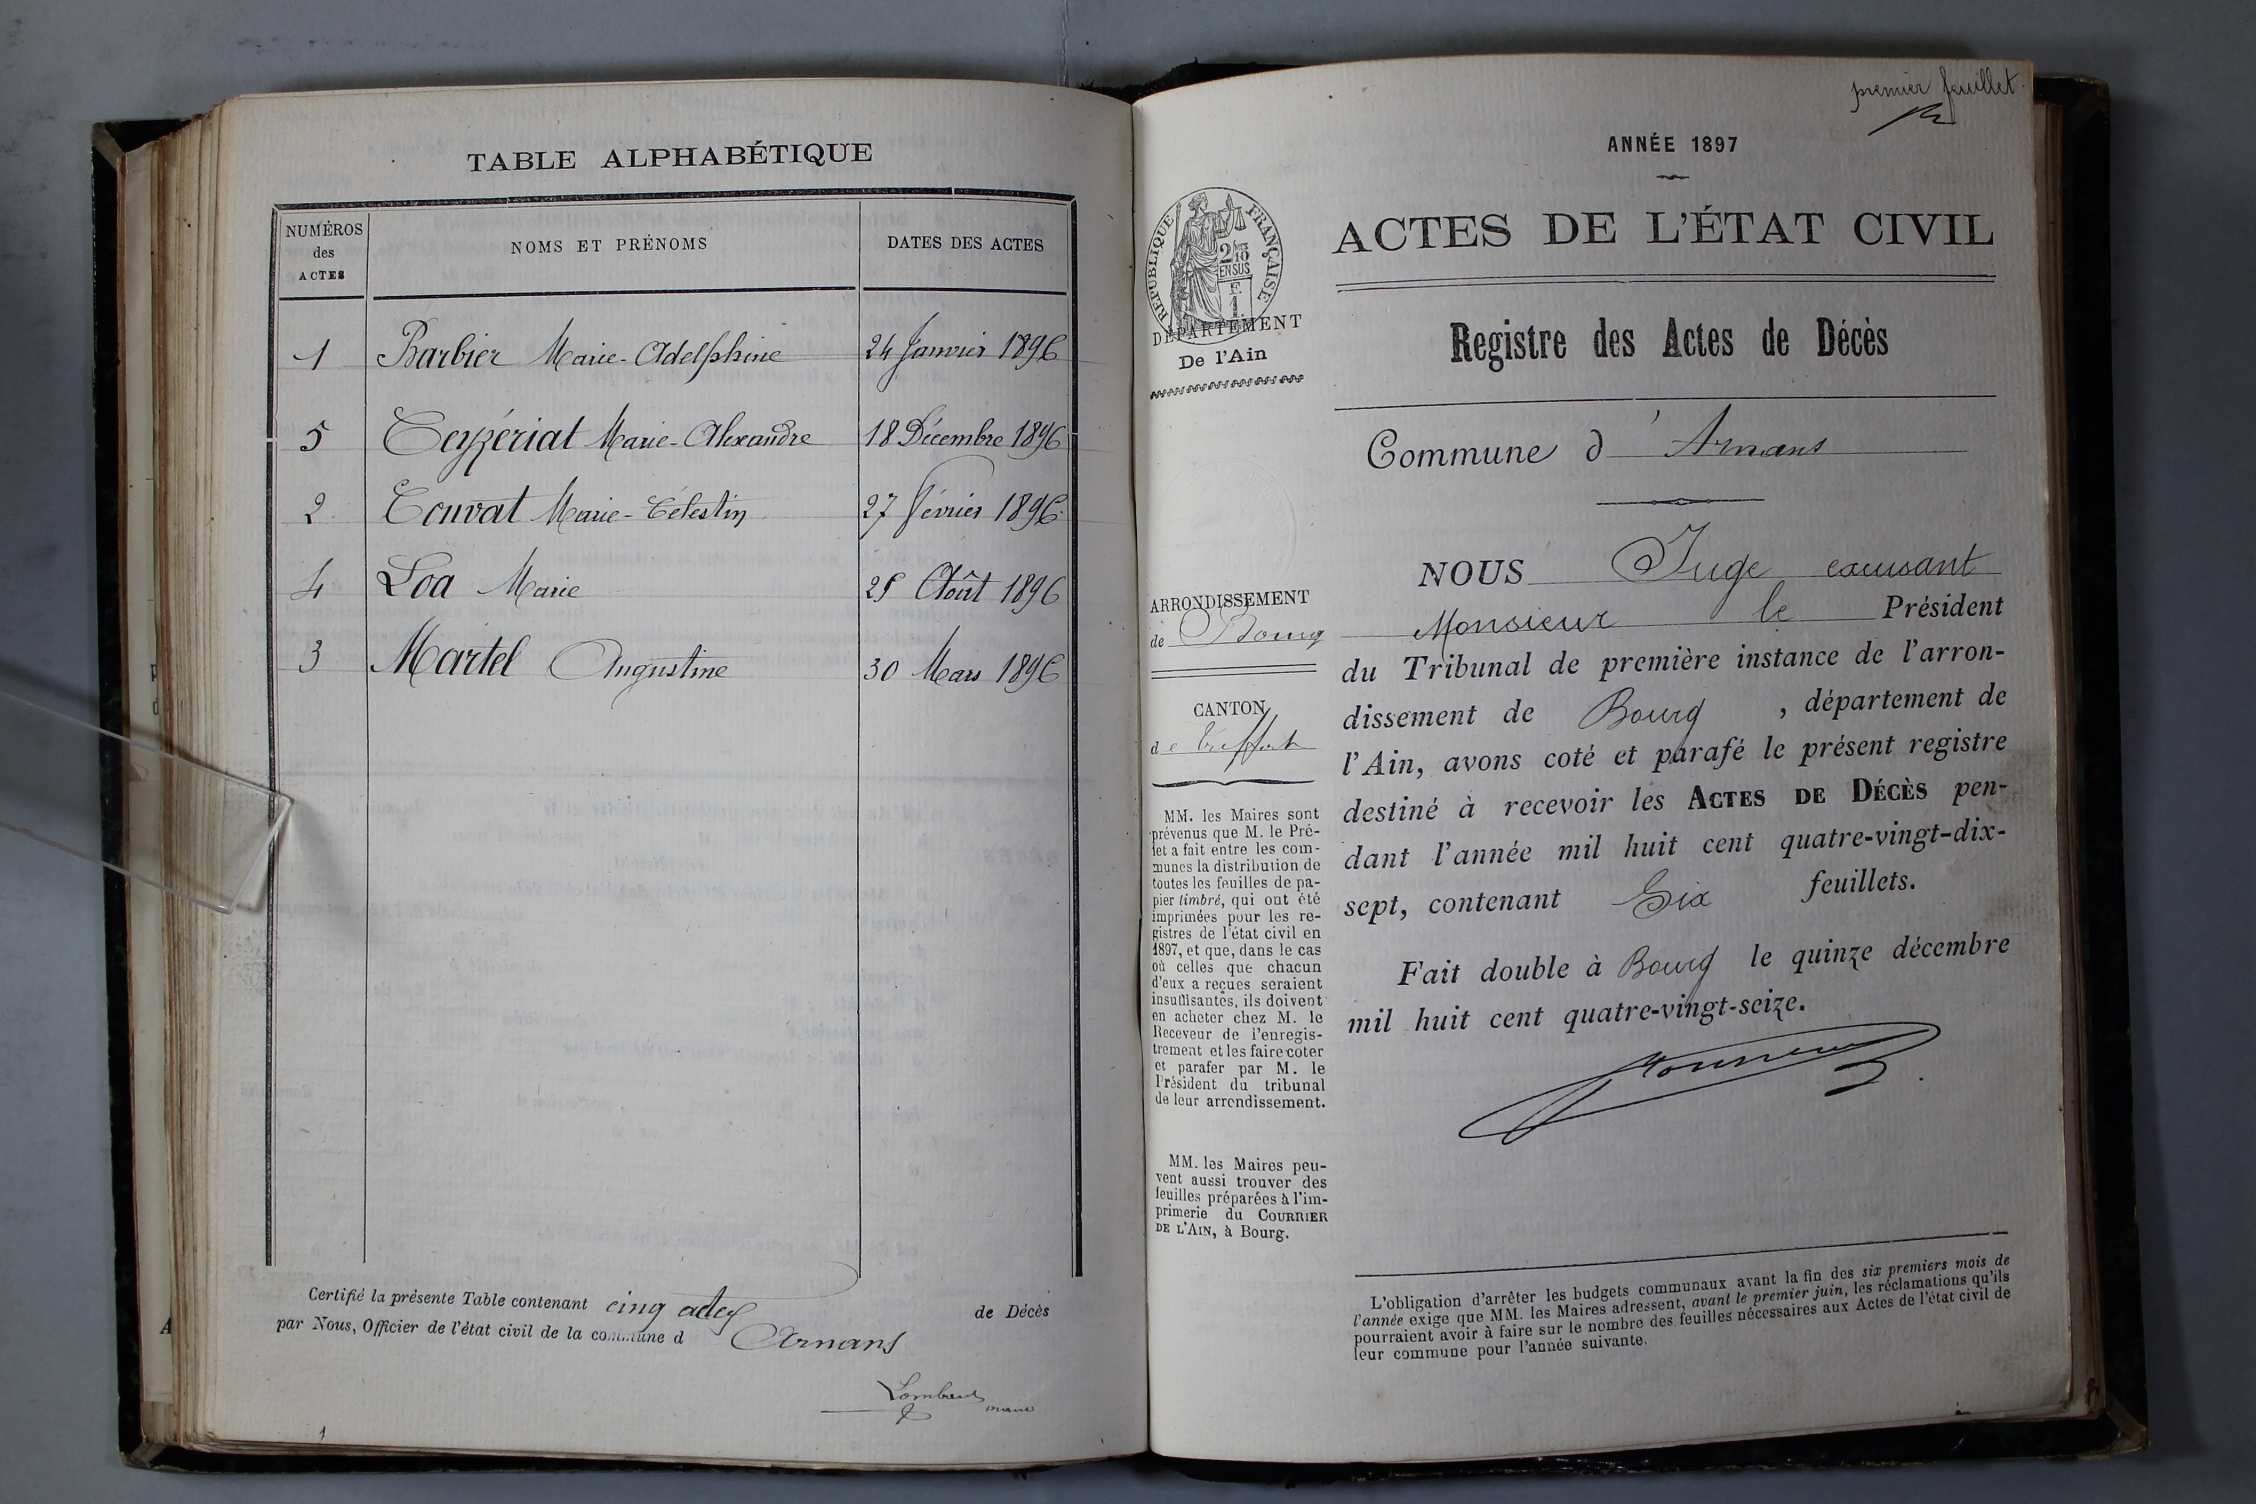 TABLE ALPHABÉTIQUE
NUMÉROS
des
ACTES
NOMS ET PRÉNOMS
DATES DES ACTES
1 Barbier Marie-Adelphine 24 Janvier 1896
5 Ceyzériat Marie-Alexandre 18 Décembre 1896
2 Convat Marie-Célestin 27 Février 1896
4 Loa Marie 25 Août 1896
3 Martel Augustine 30 Mars 1896
Certifié la présente Table contenant cinq actes de Décès
par Nous, Officier de l'état civil de la commune d Arnans
maire
premier feuillet
ANNÉE 1897
RÉPUBLIQUE FRANÇAISE
2/10
EN SUS
E
1
DÉPARTEMENT
De l'Ain
ACTES DE L'ÉTAT CIVIL
Registre des Actes de Décès
Commune d'Arnans
ARRONDISSEMENT
de Bourg
CANTON
de Treffort
MM. les Maires sont
prévenus que M. le Pré-
fet a fait entre les com-
munes la distribution de
toutes les feuilles de pa-
pier timbré, qui ont été
imprimées pour les re-
gistres de l'état civil en
1897, et que, dans le cas
où celles que chacun
d'eux a reçues seraient
insuffisantes, ils doivent
en acheter chez M. le
Receveur de l'enregis-
trement et les faire coter
et parafer par M. le
Président du tribunal
de leur arrondissement.
MM. les Maires peu-
vent aussi trouver des
feuilles préparées à l'im-
primerie du COURRIER
DE L'AIN, à Bourg.
NOUS Juge excusant
Monsieur le Président
du Tribunal de première instance de l'arron-
dissement de Bourg , département de
l'Ain, avons coté et parafé le présent registre
destiné à recevoir les ACTES DE DÉCÈS pen-
dant l'année mil huit cent quatre-vingt-dix-
sept, contenant Six feuillets.
Fait double à Bourg le quinze décembre
mil huit cent quatre-vingt-seize.
L'obligation d'arrêter les budgets communaux avant la fin des six premiers mois de
l'année exige que MM. les Maires adressent, avant le premier juin, les réclamations qu'ils
pourraient avoir à faire sur le nombre des feuilles nécessaires aux Actes de l'état civil de
leur commune pour l'année suivante.